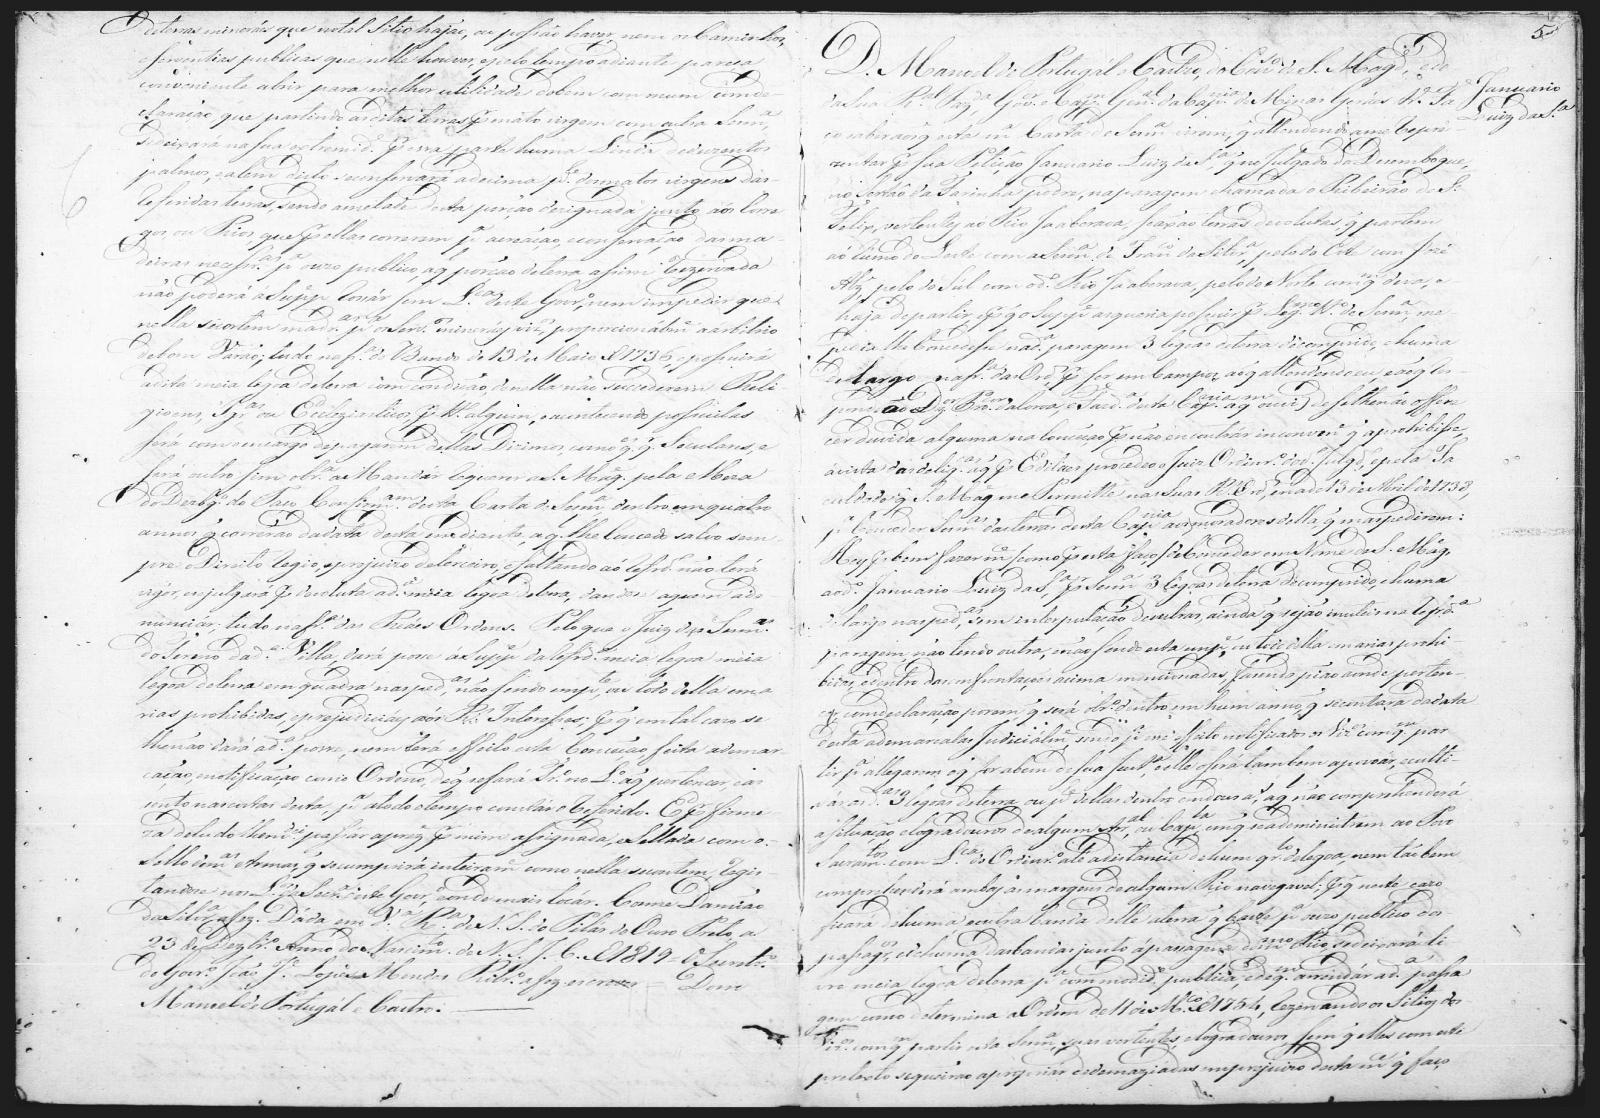 de terras mineráes que no tal Sitio hajão, ou possão haver, nem os Caminhos,
e serventias publicas que nelle houver, e pelo tempo adiante pareça
conveniente abrir para melhor utilidade do bem commum com de-
claração que partindo as ditas terras p mato virgem com outra Sesm.ª,
deixará na sua extremid.e p essa parte huma Linda de duzentos
palmos, e alem disto conservará a decima p.te dos matos virgens das
referidas terras, sendo ametade desta porção designada junto aos Corre-
gos, ou Rios, que p ellas correrem p.ª a creação, e conservação das ma-
deiras necessr.as p.ª o uzo publico, a q. porção de terra assim rezervada
não poderá a Supp.e roçar sem L.ca deste Gov.o, nem impedir que
nella se cortem madr.as p.ª o Serv.o mineral, proporcionalm.e a arbitrio
de bom Varão; tudo na f.ª do Bando de 13 de Maio de 1736, e possuirá
a dita meia legoa de terra com condição, de nella não sucederem Reli-
gioens, Igr.as, ou Ecleziasticos p tt.o algum, e acontecendo possuilas
será com o encargo de pagarem dellas Dizimos, como q.q. Seculares, e
será outro sim obr.ª a Mandár requerer a S. Mag. pela Meza
do Dezbg.o do Paço Confirm.am desta Carta de Sesm.ª dentro em quatro
annos q. correrão da data desta em diante, a q. lhe concedo salvo sem-
pre o Direito regio, e prejuizo de terceiro, e faltando ao refr.o não terá
vigor, e se julgará p devoluta a d.ª meia legoa de terra, dando-se a quem a de-
nunciár; tudo na f.ª das Reáes Ordens. Pelo que o Juiz das Sesm.as
do Termo da d.ª Villa, dará posse á Supp.e da refr.da meia legoa meia
legoa de terra em quadra nas ped.as não sendo emp.te, ou todo della em a-
rias prohibidas, e prejudiciaes aos R.s Interesses; p q. em tal caso se
lhe não dará a d.ª posse, nem terá effeito esta Concessão, feita a demar-
cação, e notificação como Ordeno, de q. se fará Tr.o no L.o a q. pertencer, e as-
sento nas costas desta, p.ª a todo o tempo constár o referido. E p firme-
za de tudo lhe mandei passar a prez.e p mim assignada, e Sellada com o
Sello de m.as Armas, q. se cumprirá inteiram.e como nella se contem, regis-
tando-se nos L.os da Secr.ª deste Gov.o, e onde mais tocár. Cosme Damião
da Silvr.ª a fez. Dada em V.ª R.ª de N. S. do Pilar do Ouro Preto, a
23 de Dezbr.o Anno do Nascim.o de N. S. J. C. de 1819 O Secretr.o
do Gov.o João J.e Lopes Mendes Ribr.o a fez escrever = Dom
Manoel de Portugál e Castro.
5
Januario
Luiz da S.ª
D. Manoel de Portugál e Castro, do Con.o de S. Mag.e, e do
da sua R.al Faz.da Gov.or e Cap.m Gen.al da Cap.nia de Minas Geráes &.ª Fa-
ço saber aos q. esta m.ª Carta de Sesm.ª virem, q. attendendo a me Repre-
zentar p sua Petição Januario Luiz da S.ª, q. no Julgado do Dezemboque,
no Certão da Farinha podre, na paragem chamada o Ribeirão de S.
Felix, vertentes ao Rio Jaoboraca, se axão terras devolutas, q. partem
ao lado do Leste com a Sesm.ª de Fran.co da Silvr.ª, pelo do Este com José
Alz, pelo do Sul com o d.o Rio Jaoboraca, pelo do Norte com q. deva, e
haja de partir, e p q. o Supp.e as queria possuir p Leg.mo tt.o de Sesm.ª, me
pedia lhe Concedesse na d.ª paragem 3 legoas de terra de comprido, e huma
de largo na f.ª das Ord.s p ser em Campos, ao q. attendendo eu, e ao q. res-
ponderão o D.or Pr.or da Coroa, e Faz.da desta Cap.nia (a q.m ouvi) de se lhe não offere-
cer duvida alguma na Concessão p não encontrár inconven.e q. a prohibisse,
á vista das delig.as a q. p Editaes procedeo o Juiz Ordinr.o do d.o Julg.do, e pela Fa-
culdade q. S. Mag. me Permitte nas Suas R.s Ord.s, na de 13 de Abril de 1738,
p.ª Conceder Sesm.as das terras desta Cap.nia aos moradores della q. mas pedirem:
Hey p bem fazer m.e (como p esta faço) de Conceder em Nome de S. Mag.
ao d.o Januario Luiz da S.ª p Sesm.ª 3 legoas de terra de comprido, e huma
de largo nas ped.as, sem interpulação de outras, ainda q. sejão inuteis na refr.da
paragem, não tendo outra, e não sendo esta em p.te, ou todo della em arias prohi-
bidas, e dentro das confrontaçoes acima mencionadas, fazendo pião aonde perten-
cer, com declaração porem q. será obr.o dentro em hum anno, q. se contará da data
desta a demarcalas Judicialm.e, sendo p.ª esse effeito notificados os Viz.os com q.m par-
tir p.ª allegarem o q. for a bem de sua just.ª, e elle o será tambem a povoar, e culti-
vár as d.as 3 legoas de terra, ou p.te dellas dentro em dous a.s, a q. não comprehenderá
a situação e logradouros de algum Ar.al, ou Cap.la, em q. se administrem ao Povo
Sacram.tos com L.ca do Ordinr.o até a distancia de hum qr.to de legoa, nem tão bem
comprehenderá ambas as margens de algum Rio navegavel: p q. neste cazo
ficará de huma, e outra banda delle a terra q. baste p.ª o uzo publico dos
passagr.os, e de huma das bandas junto á passagem do mesmo Rio, se deixará li-
vre meia legoa de terra p.ª commodid.e publica, e de q.m arrendár a d.ª passa-
gem como determina a Ordem de 11 de M.ço de 1754, rezervando os Sitios dos
Viz.os com q.m partir esta Sesm.ª, suas vertentes, e logradouros, sem q. elles com este
pretexto se queirão apropriar de demaziadas em prejuizo desta m.e q. faço